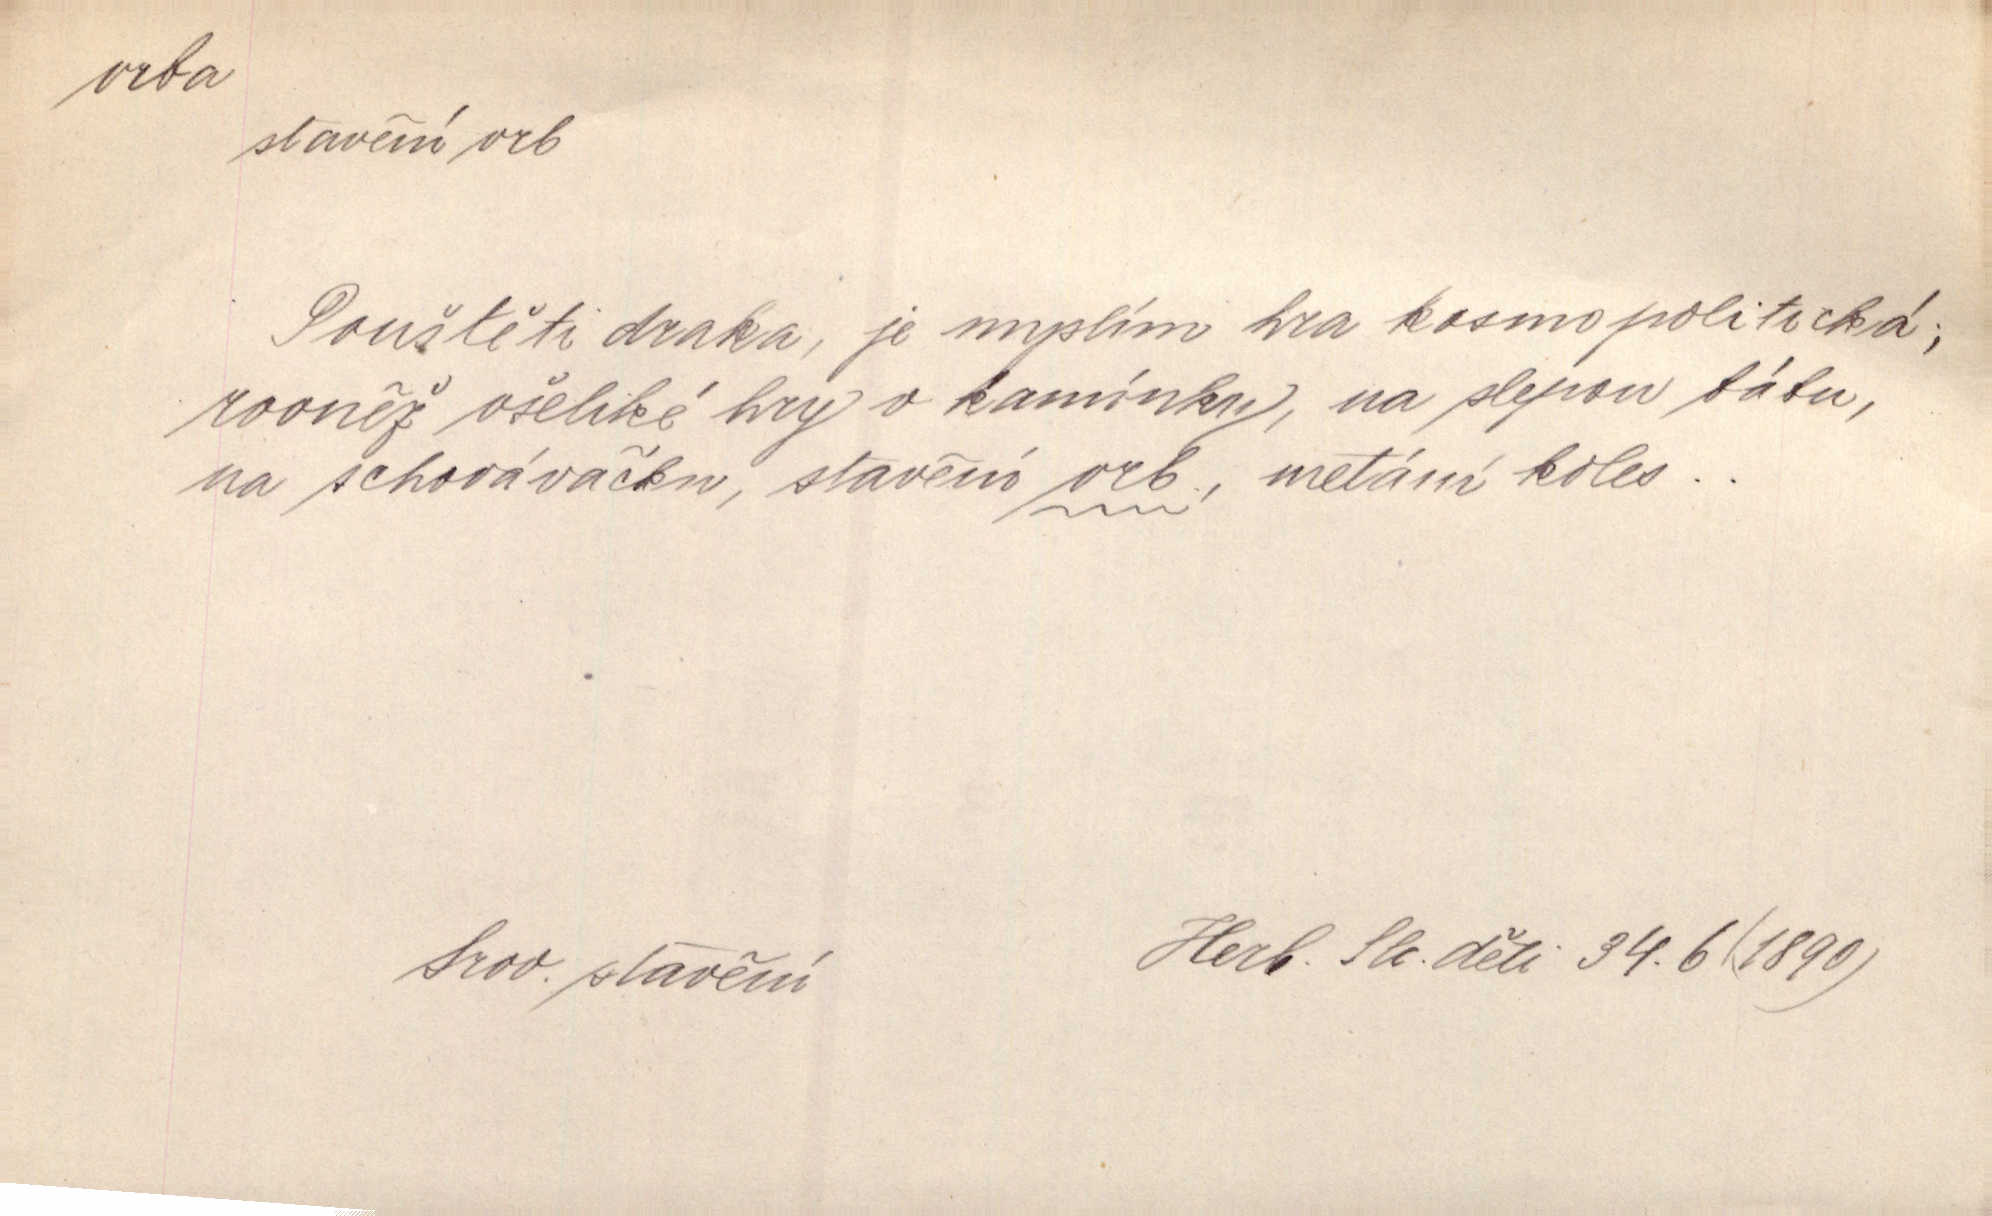 vrba
stavění vrb
Pouštěti draka, je myslím hra kosmopolitická;
rovněž všeliké hry v kamínky, na slepou bábu,
na schovávačku, stavění vrb, metání koles ..
Srov. stavění
Herb. Sl. děti 34. 6 (1890)